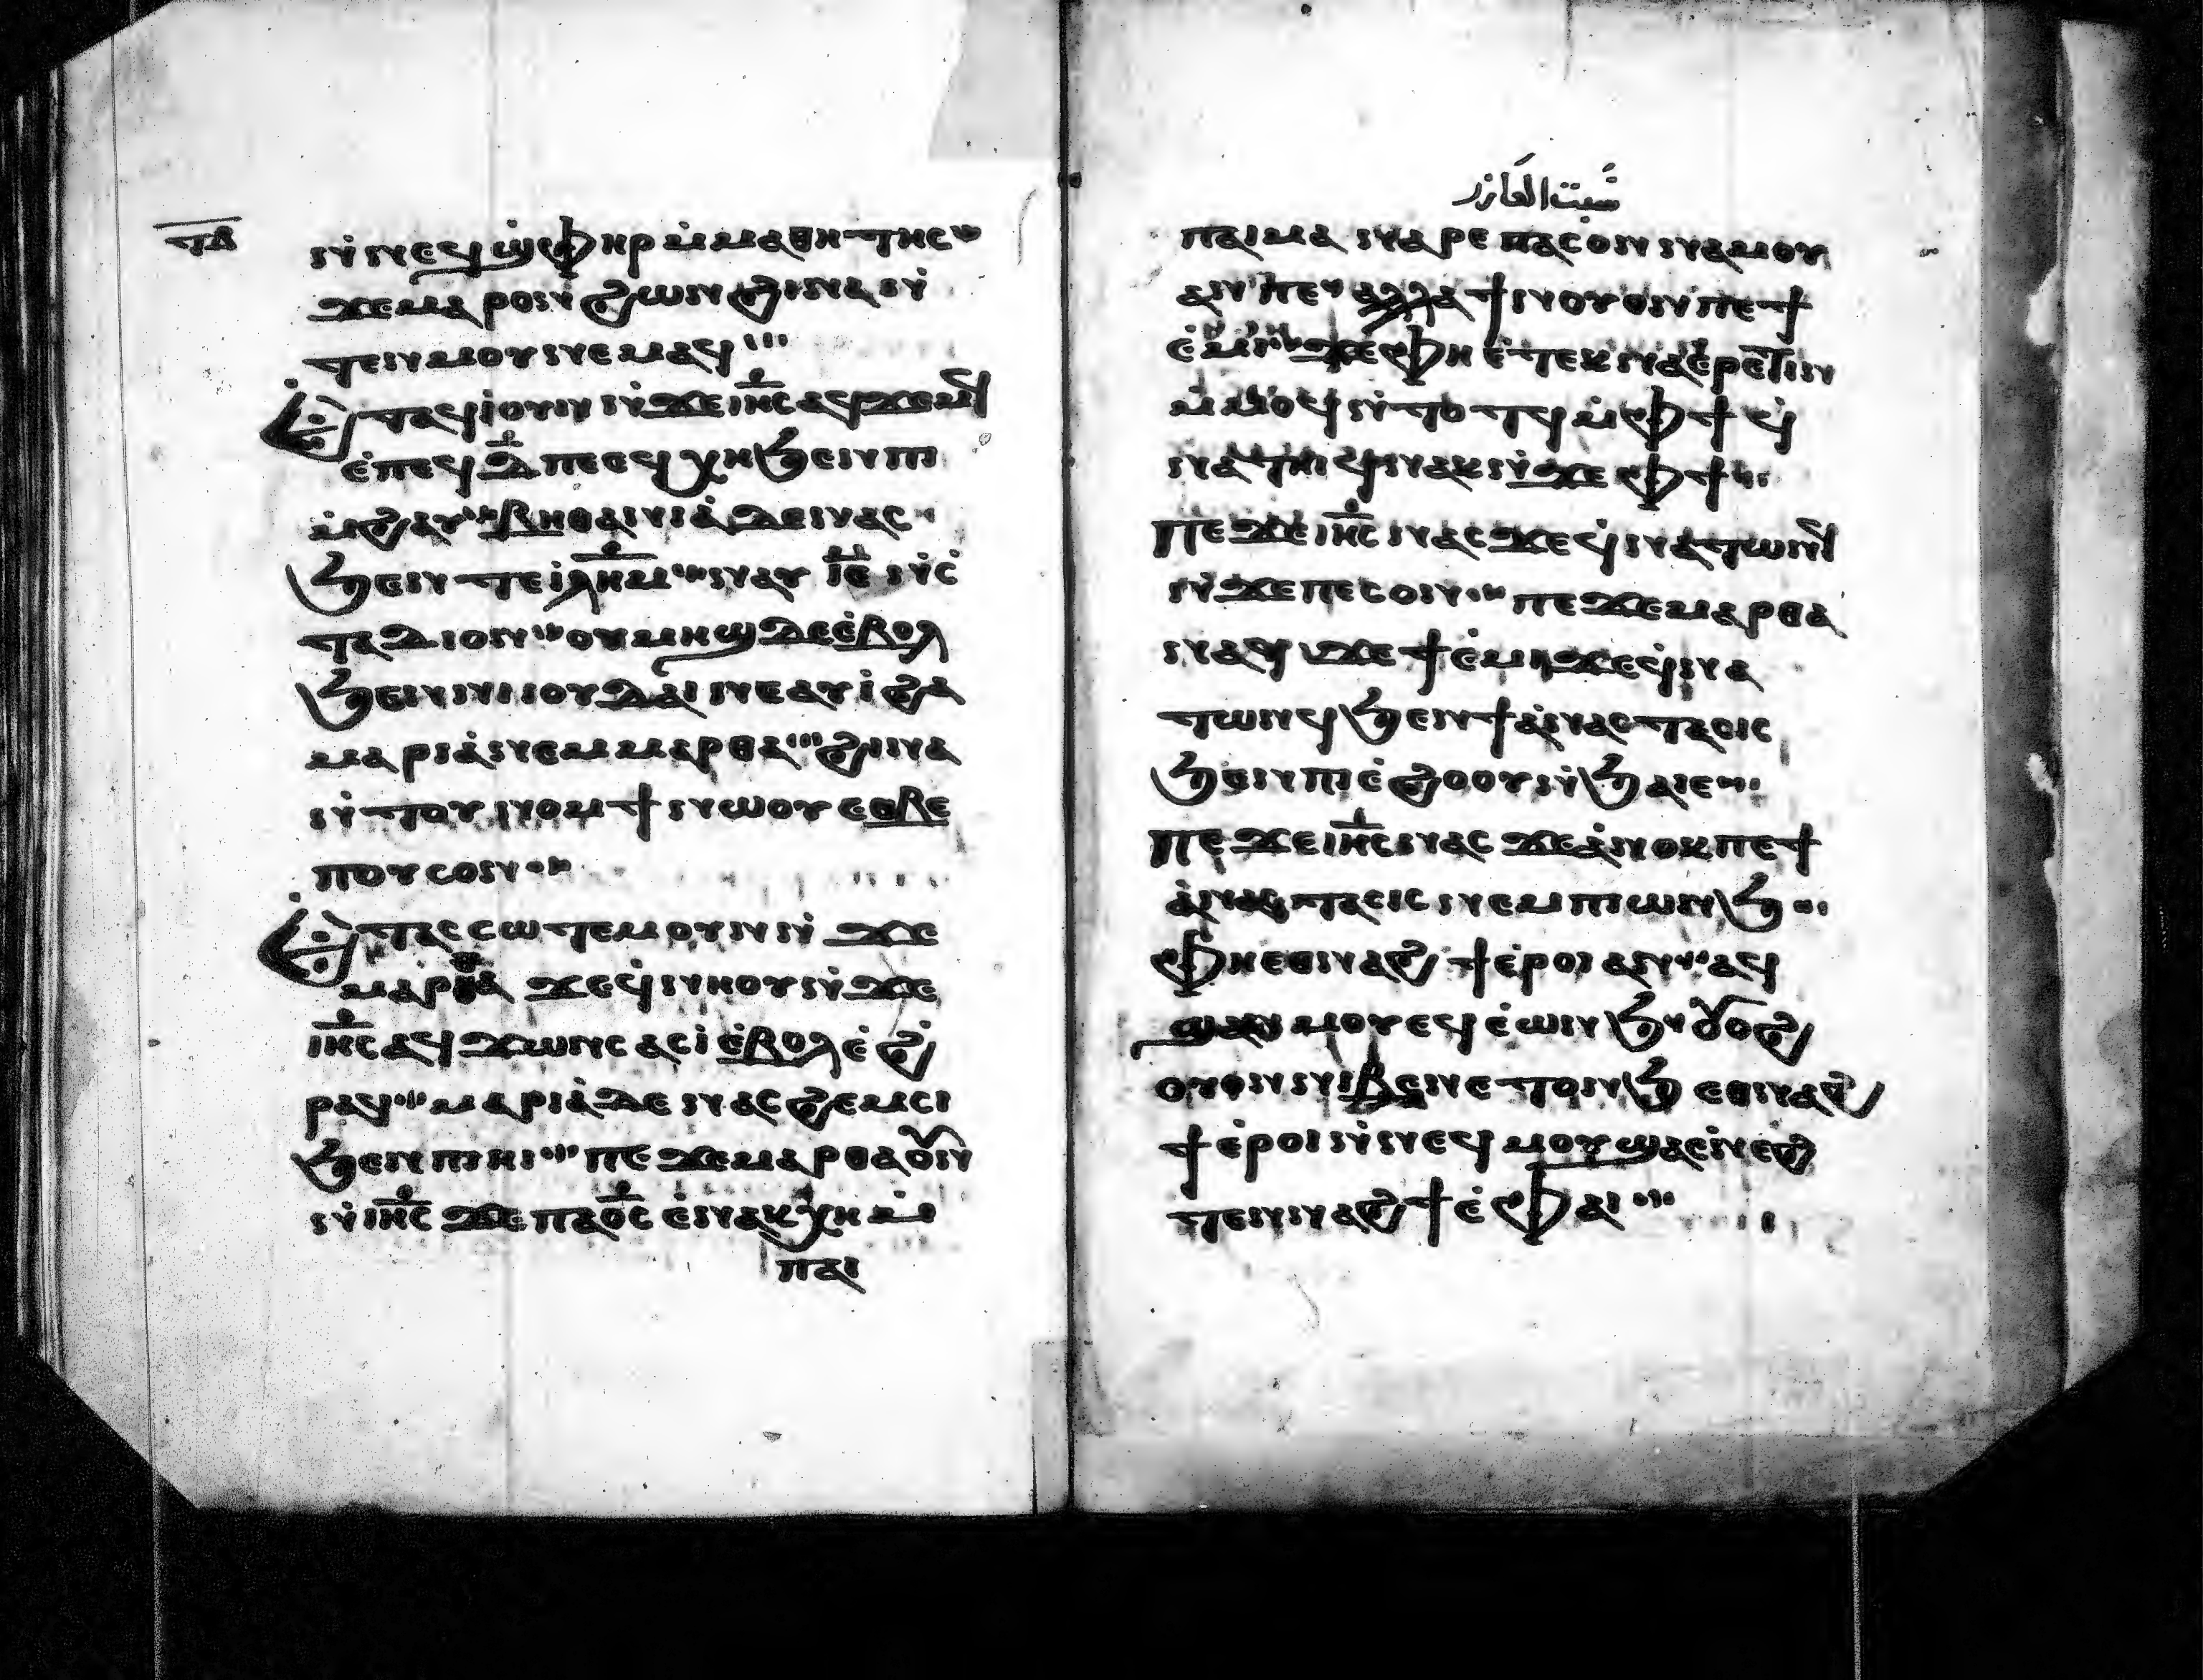 ⲧⲃ
ⲛ̀ⲛⲉϥϣ̀ⲫⲏⲣ ⲙ̀ⲙⲁⲑⲏⲧⲏⲥ
ϫⲉⲙⲁⲣⲟⲛ ϩⲱⲛ ϩⲓⲛⲁ ⲛ̀
ⲧⲉⲛⲙⲟⲩ ⲛⲉⲙⲁϥ
ⲉⲧⲁϥⲓ̀ ⲟⲩⲛ ⲛ̀ϫⲉ ⲓⲏ̅ⲥ̅ ⲁϥϫⲉⲙϥ
ⲉ̀ⲡⲉϥⲇ̅ ⲡⲉ ⲉϥⲭⲏ ϧⲉⲛ ⲡⲓ
ⲙ̀ϩⲁⲩ ⲃⲏⲑⲁⲛⲓⲁ̀ ⲇⲉ ⲛⲁⲥ
ϧⲉⲛⲧ ⲉⲓ̀ⲗ̅ⲏ̅ⲙ̅ ⲛⲁⲩ ⲓ̅ⲉ̅ ⲛ̀ⲥ̀
ⲧⲁⲇⲓⲟⲛ ⲟⲩⲙⲏϣ ⲇⲉ ⲉ̀ⲃⲟⲗ
ϧⲉⲛ ⲛⲓⲓⲟⲩⲇⲁⲓ ⲛⲉⲁⲩⲓ̀ ϩⲁ
ⲙⲁⲣⲓⲁ̀ ⲛⲉⲙ ⲙⲁⲣⲑⲁ ϩⲓⲛⲁ
ⲛ̀ⲧⲟⲩⲛⲟⲙϯ ⲛⲱⲟⲩ ⲉⲑⲃⲉ
ⲡⲟⲩⲥⲟⲛ
ⲉⲧⲁⲥⲥⲱⲧⲉⲙ ⲟⲩⲛ ⲛ̀ϫⲉ
ⲙⲁⲣⲑⲁ ϫⲉ ϥ̀ⲛⲏⲟⲩ ⲛ̀ϫⲉ
ⲓⲏ̅ⲥ̅ ⲁϥϫⲱⲛⲥ ⲁⲥⲓ̀ ⲉ̀ⲃⲟⲗ ⲉ̀ϩ̀
ⲣⲁϥ ⲙⲁⲣⲓⲁ̀ ⲇⲉ ⲛⲁⲥϩⲉⲙⲥⲓ
ϧⲉⲛ ⲡⲓⲏⲓ ⲡⲉϫⲉ ⲙⲁⲣⲑⲁ ⲟⲩⲛ
ⲛ̀ⲓⲏ̅ⲥ̅ ϫⲉ ⲡⲁⲟ̅ⲥ̅ ⲉ̀ⲛⲁⲕⲭⲏ ⲙ̀
ⲡⲁⲓ
شبت العازر
ⲡⲁⲓⲙⲁ ⲛⲁⲣⲉ ⲡⲁⲥⲟⲛ ⲛⲁⲙⲟⲩ
ⲁⲛ ⲡⲉ ⲁⲗⲗⲁ ϯⲛⲟⲩ ⲟⲛ ⲡⲉ ϯ
ⲉ̀ⲙⲓ ϫⲉ ⲫⲏ ⲉ̀ⲧⲉⲕⲛⲁⲉ̀ⲣⲉⲧⲓⲛ
ⲙ̀ⲙⲟϥ ⲛ̀ⲧⲟⲧϥ ⲙ̀ⲫϯ ϥ̀
ⲛⲁⲧⲏⲓϥ ⲛⲁⲕ ⲛ̀ϫⲉ ⲫϯ
ⲡⲉϫⲉ ⲓⲏ̅ⲥ̅ ⲛⲁⲥ ϫⲉ ϥ̀ⲛⲁⲧⲱⲛϥ
ⲛ̀ϫⲉ ⲡⲉⲥⲟⲛ ⲡⲉϫⲉ ⲙⲁⲣⲑⲁ
ⲛⲁϥ ϫⲉ ϯⲉ̀ⲙⲓ ϫⲉ ϥ̀ⲛⲁ
ⲧⲱⲛϥ ϧⲉⲛ ϯⲁ̀ⲛⲁⲥⲧⲁⲥⲓⲥ
ϧⲉⲛ ⲡⲓⲉ̀ϩⲟⲟⲩ ⲛ̀ϧⲁⲉ
ⲡⲉϫⲉ ⲓⲏ̅ⲥ̅ ⲛⲁⲥ ϫⲉ ⲁ̀ⲛⲟⲕ ⲡⲉ ϯ
ⲁ̀ⲛⲁⲥⲧⲁⲥⲓⲥ ⲛⲉⲙ ⲡⲓⲱⲛϧ
ⲫⲏ ⲉⲑⲛⲁϩϯ ⲉ̀ⲣⲟⲓ ⲁⲛ ⲁϥ
ϣⲁⲛⲙⲟⲩ ⲉϥⲉ̀ⲱⲛϧ ⲟⲩⲟϩ
ⲟⲩⲟⲛ ⲛⲓⲃⲉⲛ ⲉⲧⲟⲛϧ ⲉⲑⲛⲁϩ
ϯ ⲉ̀ⲣⲟⲓ ⲛ̀ⲛⲉϥⲙⲟⲩ ϣⲁⲉ̀ⲛⲉϩ
ⲧⲉⲛⲛⲁϩϯ ⲉ̀ⲫⲁⲓ